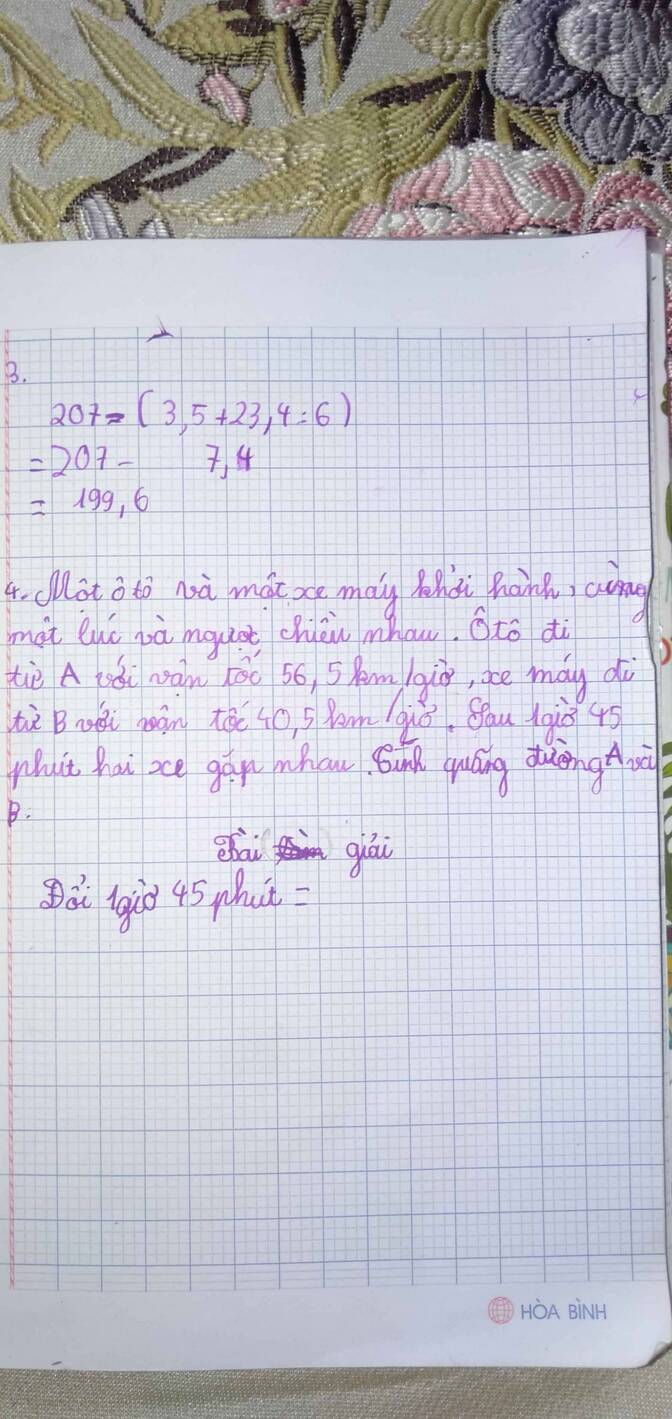 3.
207-(3,5+23,4:6)
=207- 7,4
= 199,6
4. Một ô tô và một xe máy khởi hành, cùng
một lúc và ngược chiều nhau. Ô tô đi
từ A với vận tốc 56,5 km/giờ, xe máy đi
từ B với vận tốc 40,5 km/giờ. Sau 1giờ 45
phút hai xe gặp nhau. Tính quãng đường A và
B.
Bài giải
Đổi 1giờ 45 phút =
HÒA BÌNH